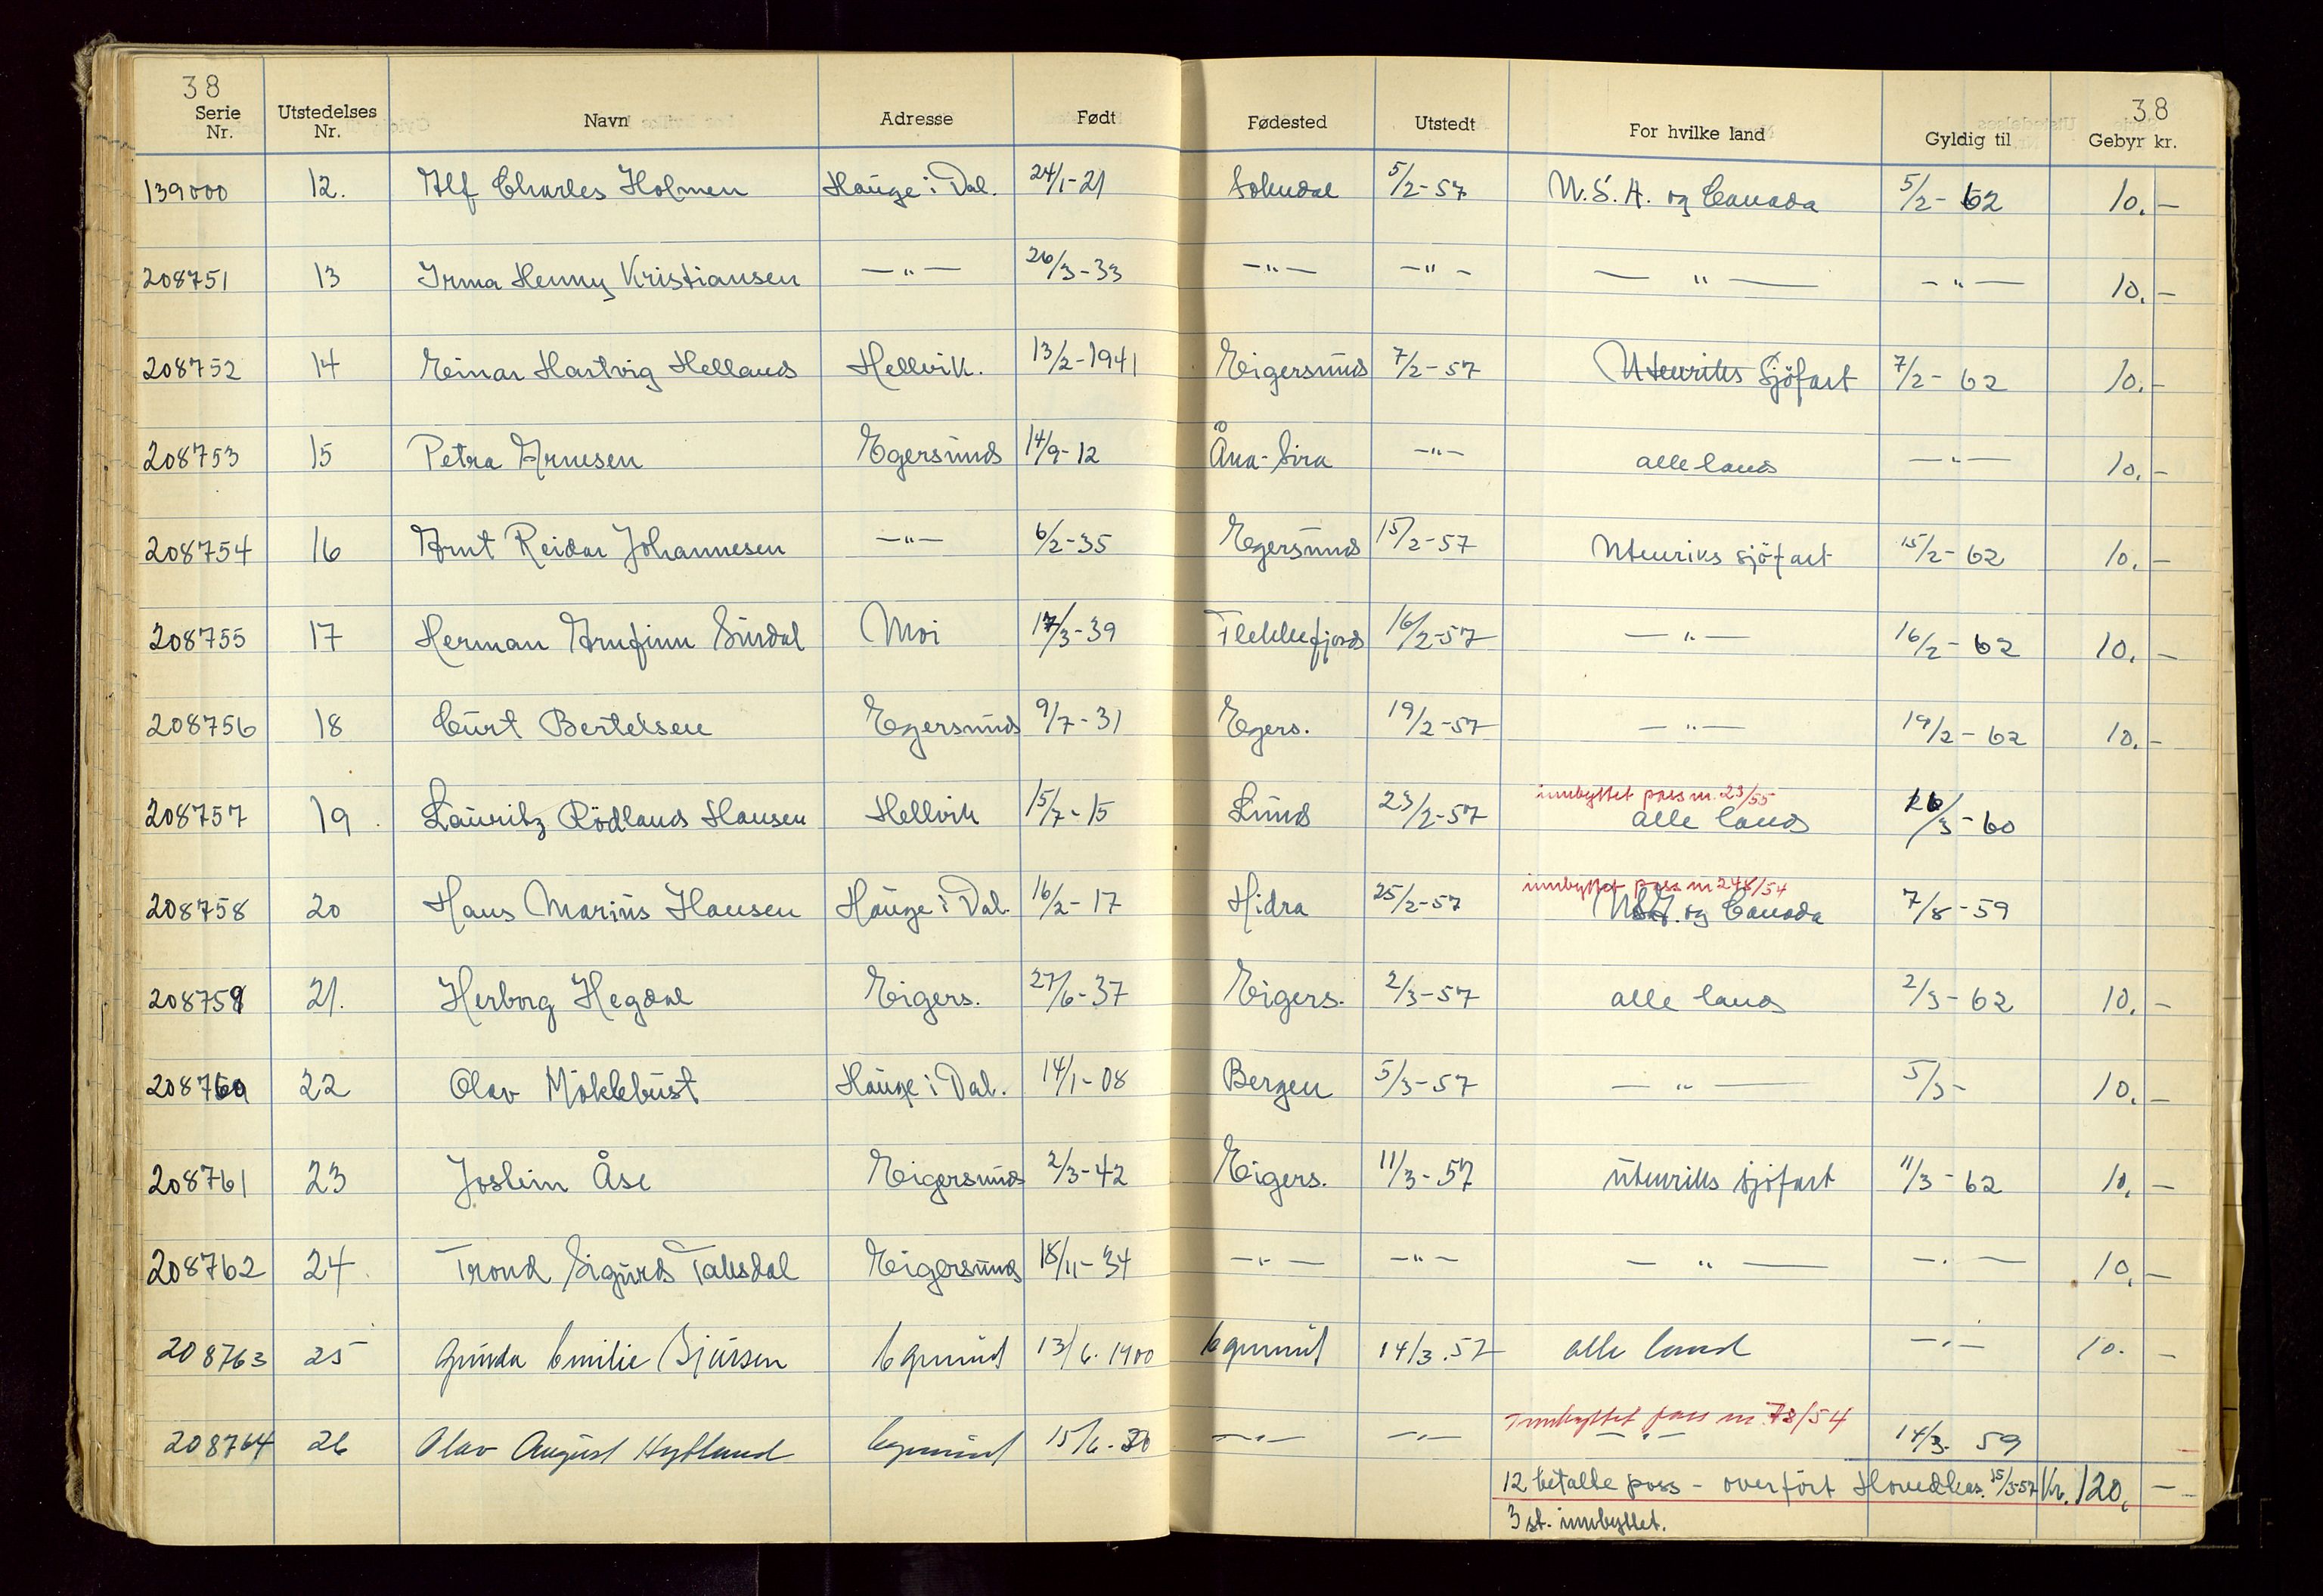 38 38
Serie Nr. Utstedelses Nr. Navn Adresse Født Fødested Utstedt For hvilke land Gyldig til Gebyr kr.
139000 12. Alf Charles Holmen Hauge i Dal. 24/1-21 Sokndal 5/2-57 U.S.A. og Canada 5/2-62 10.-
208751 13 Irma Henny Kristiansen -"- 26/3-33 -"- -"- -"- -"- 10.-
208752 14 Einar Hartvig Helland Hellvik. 13/2-1941 Eigersund 7/2-57 Utenriks Sjöfart 7/2-62 10.-
208753 15 Petra Arnesen Egersund 14/9-12 Åna-Sira -"- alle land -"- 10.-
208754 16 Arnt Reidar Johannesen -"- 6/2-35 Egersund 15/2-57 Utenriks sjöfart 15/2-62 10.-
208755 17 Herman Arnfinn Surdal Moi 17/3-39 Flekkefjord 16/2-57 -"- 16/2-62 10.-
208756 18 Curt Bertelsen Egersund 9/7-31 Egers. 19/2-57 -"- 19/2-62 10.-
innbyttet pass nr. 23/55
208757 19. Lauritz Rödland Hansen Hellvik 15/7-15 Lund 23/2-57 alle land 26/3-60
innbyttet pass nr 248/54
208758 20 Hans Marius Hansen Hauge i Dal. 16/2-17 Hidra 25/2-57 USA. og Canada 7/8-59
208759 21. Herborg Hegdal Eigers. 27/6-37 Eigers. 2/3-57 alle land 2/3-62 10.-
208760 22 Olav Möklebust Hauge i Dal. 14/1-08 Bergen 5/3-57 -"- 5/3- 10.-
208761 23 Joslein Åse Eigersund 2/3-42 Eigers. 11/3-57 utenriks sjöfart 11/3-62 10.-
208762 24. Trond Sigurd Taksdal Eigersund 18/11-34 -"- -"- -"- -"- 10.-
208763 25 Gunda Emilie Sjursen Egersund 13/6.1900 Egersund 14/3.57 alle land -"- 10.-
Innbyttet pass nr. 78/54
208764 26 Olav August Hytland Egersund 15/6-30 -"- -"- -"- 14/3-59 -
12 betalte pass - overført Hovedkas. 15/3-57 Kr. 120,-
3 st. innbyttet.